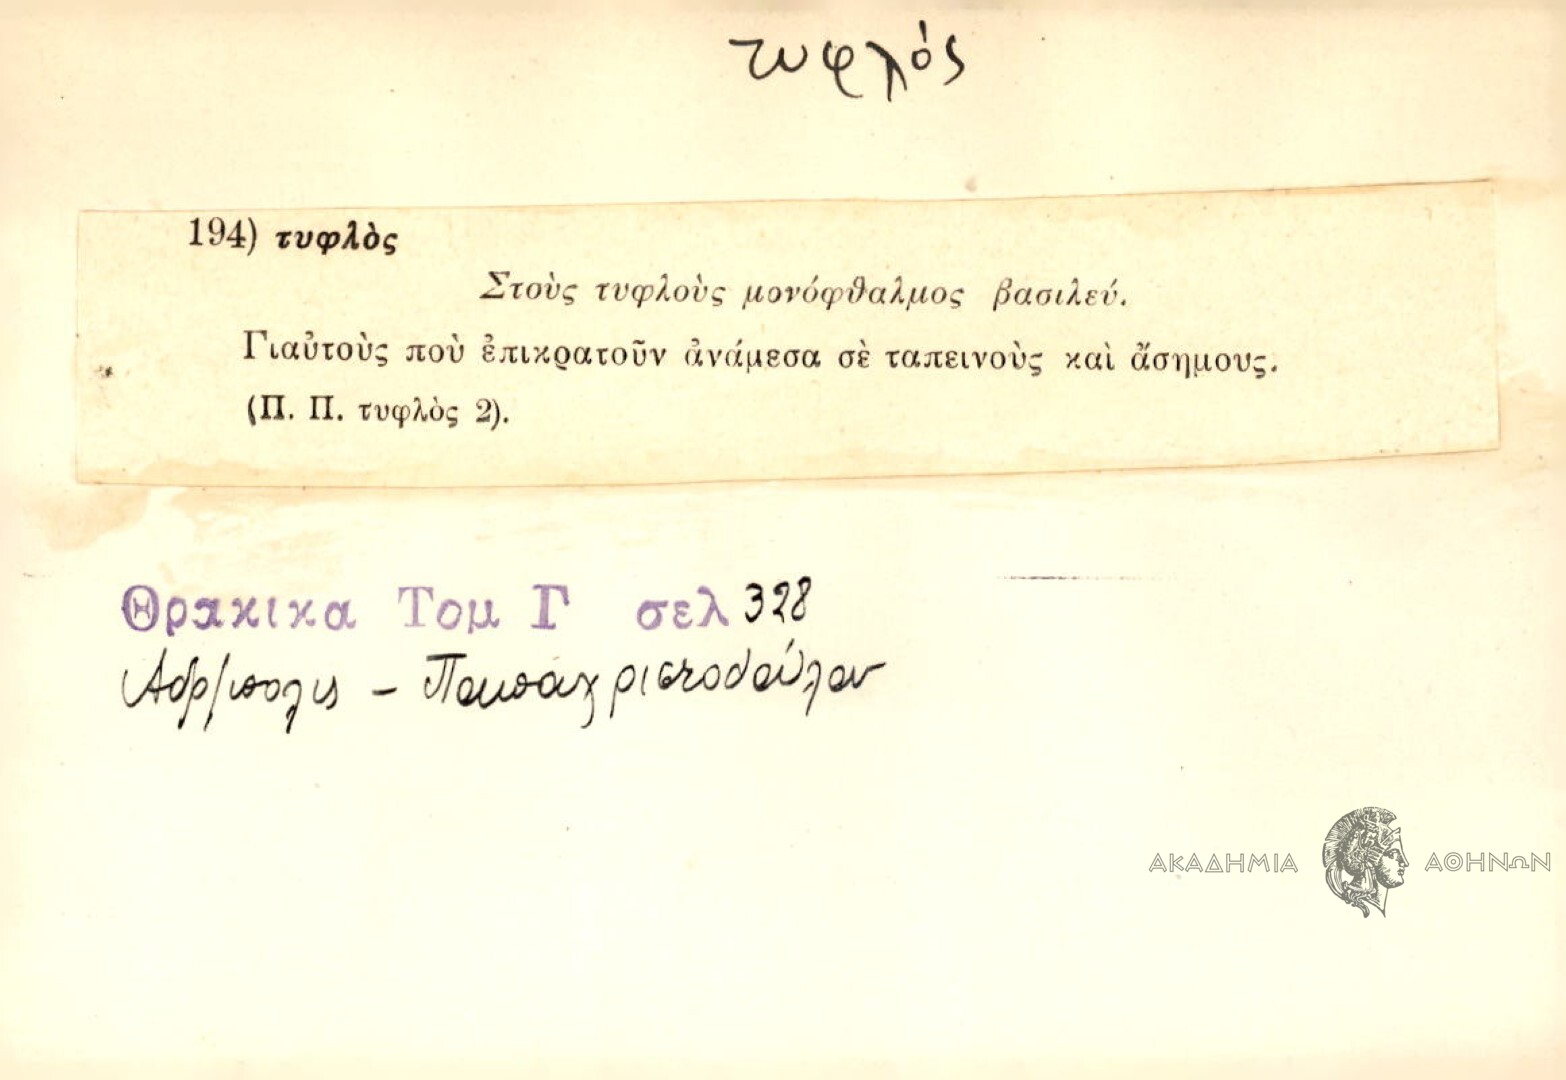 τυφλός
194) τυφλὸς
Στοὺς τυφλοὺς μονόφθαλμος βασιλεύ.
Γιαὐτοὺς ποὺ ἐπικρατοῦν ἀνάμεσα σὲ ταπεινοὺς καὶ ἄσημους.
(Π. Π. τυφλὸς 2).
Θρακικα Τομ Γ σελ 328
Ἀδρ/πολις – Παπαχριστοδούλου
ΑΚΑΔΗΜΙΑ ΑΘΗΝΩΝ